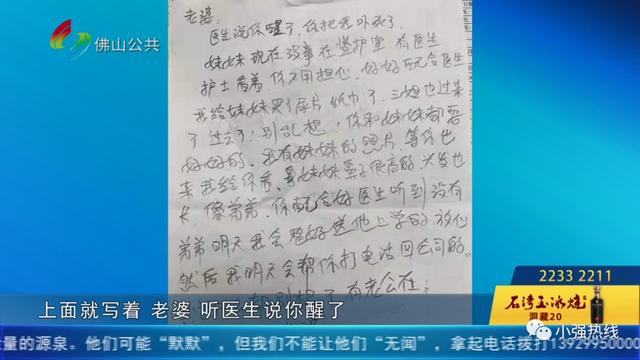 老婆:
医生说你醒了,你把我吓死了
妹妹现在没事在监护室 有医生
护士看着 你不用担心 好好配合医生
我给妹妹买了尿片 纸巾了 三姐也过来
了 过去了!别乱想,你和妹妹都要
好好的。我有妹妹的照片,等你出
来我给你看,妹妹鼻子很高的 头发也
长 像弟弟。你配合好医生听到没有
弟弟明天我会整好送他上学的 放心
然后我明天会帮你打电话回公司的。
有老公在
佛山公共
2233 2211
石湾玉冰烧
洞藏20
上面就写着 老婆 听医生说你醒了
小强热线
量的源泉。他们可能“默默”,但我们不能让他们“无闻”,拿起电话拨打13929950000